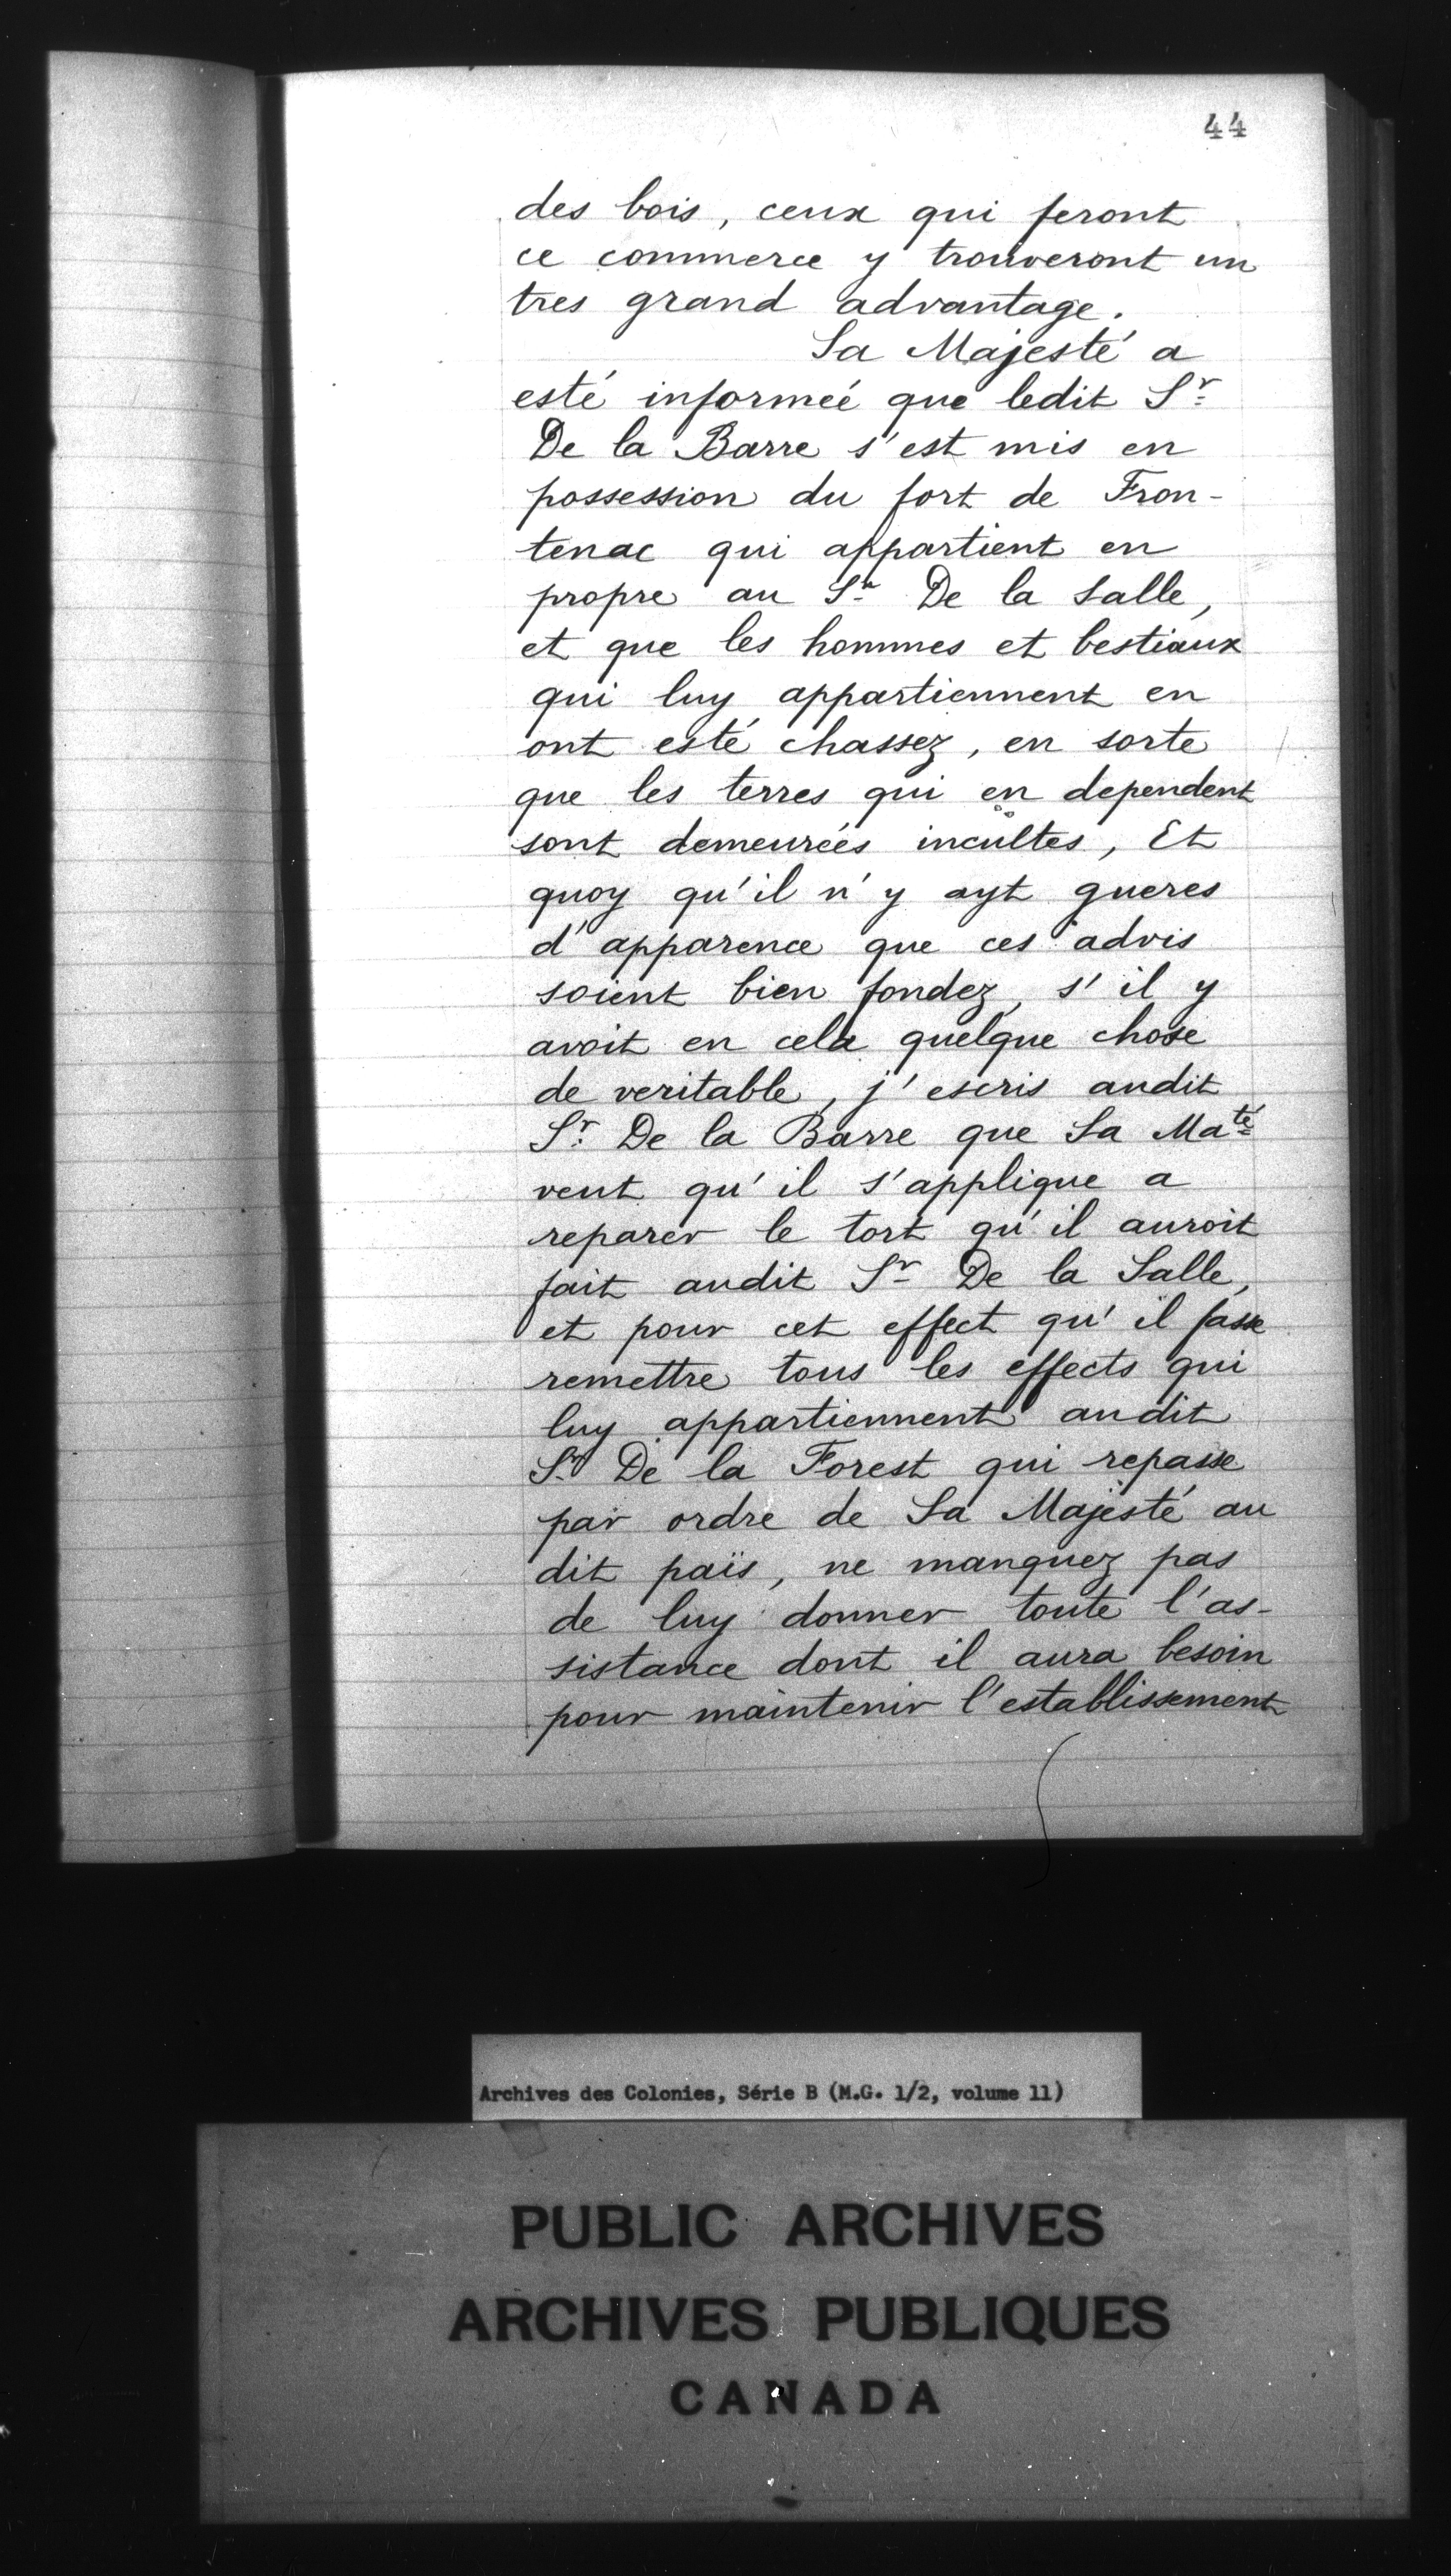 44
des bois, ceux qui feront
ce commerce y trouveront un
tres grand advantage.
Sa Majesté a
esté informée que ledit Sr
De la Barre s'est mis en
possession du fort de Fron-
tenac qui appartient en
propre au Sr De la Salle,
et que les hommes et bestiaux
qui luy appartiennent en
ont esté chassez, en sorte
que les terres qui en dependent
sont demeurées incultes, Et
quoy qu'il n'y ayt gueres
d'apparence que ces advis
soient bien fondez, s'il y
avoit en cela quelque chose
de veritable, j'escris audit
Sr De la Barre que Sa Maté
veut qu'il s'applique a
reparer le tort qu'il auroit
fait audit Sr De la Salle,
et pour cet effect qu'il fasse
remettre tous les effects qui
luy appartiennent audit
Sr De la Forest qui repasse
par ordre de Sa Majesté au
dit païs, ne manquez pas
de luy donner toute l'as-
sistance dont il aura besoin
pour maintenir l'establissement
Archives des Colonies, Série B (M.G. 1/2, volume 11)
PUBLIC ARCHIVES
ARCHIVES PUBLIQUES
CANADA